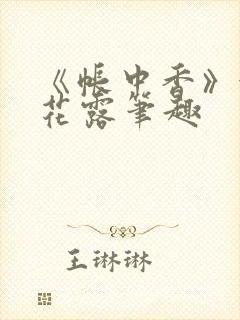 《帐中香》
花露笔趣
王琳琳